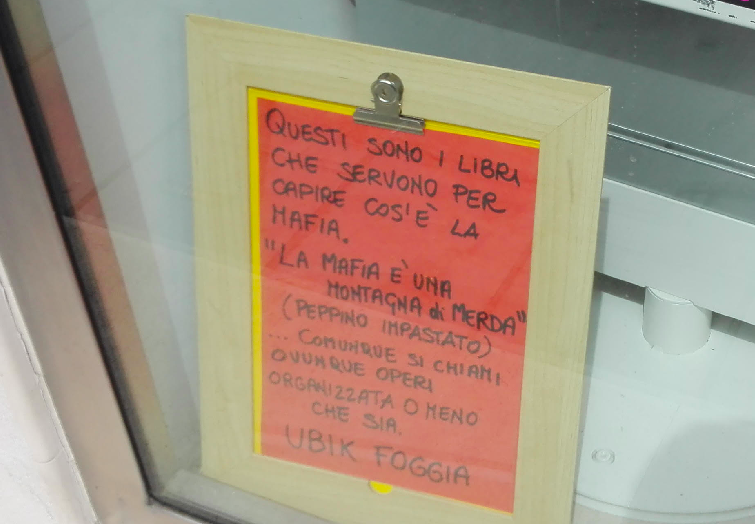 QUESTI SONO I LIBRI
CHE SERVONO PER
CAPIRE COS'È LA
MAFIA.
"LA MAFIA E' UNA
MONTAGNA di MERDA"
(PEPPINO IMPASTATO)
... COMUNQUE SI CHIAMI
OVUNQUE OPERI
ORGANIZZATA O MENO
CHE SIA.
UBIK FOGGIA